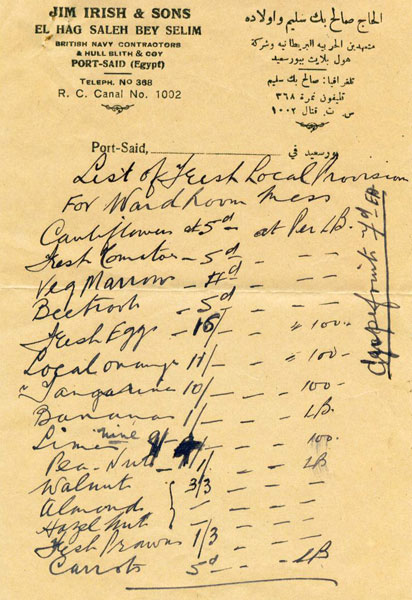 JIM IRISH & SONS
EL HAG SALEH BEY SELIM
BRITISH NAVY CONTRACTORS
& HULL BLITH & COY
PORT-SAID (Egypt)
TELEPH. No 368
R. C. Canal No. 1002
الحاج صالح بك سليم واولاده
متعهدين الحربيه البريطانيه وشركة
هول بلايث ببورسعيد
تلغرافيا: صالح بك سليم
تليفون نمرة ٣٦٨
س. ت. قنال ١٠٠٢
Port-Said, بورسعيد في
List of Fresh Local Provision
For Wardroom Mess
Cauliflowers at 5d at Per LB.
Fresh Tomatoes - 5d - - -
Veg Marrow - 4d - - -
Beetroot - 5d - - -
Fresh Eggs - 15/ - - " 100-
Local orange 11/ - - " 100-
Tangarine 10/ - - 100-
Bananas 1/ - - LB.
Limes nine - - 100.
Pea-Nuts 1/1 - - LB
Walnut 3/3 - - -
Almond - - -
Hazel nut - - -
Fresh Prawns 1/3 - - -
Carrots 5d - - LB
Grapefruit 7d EA